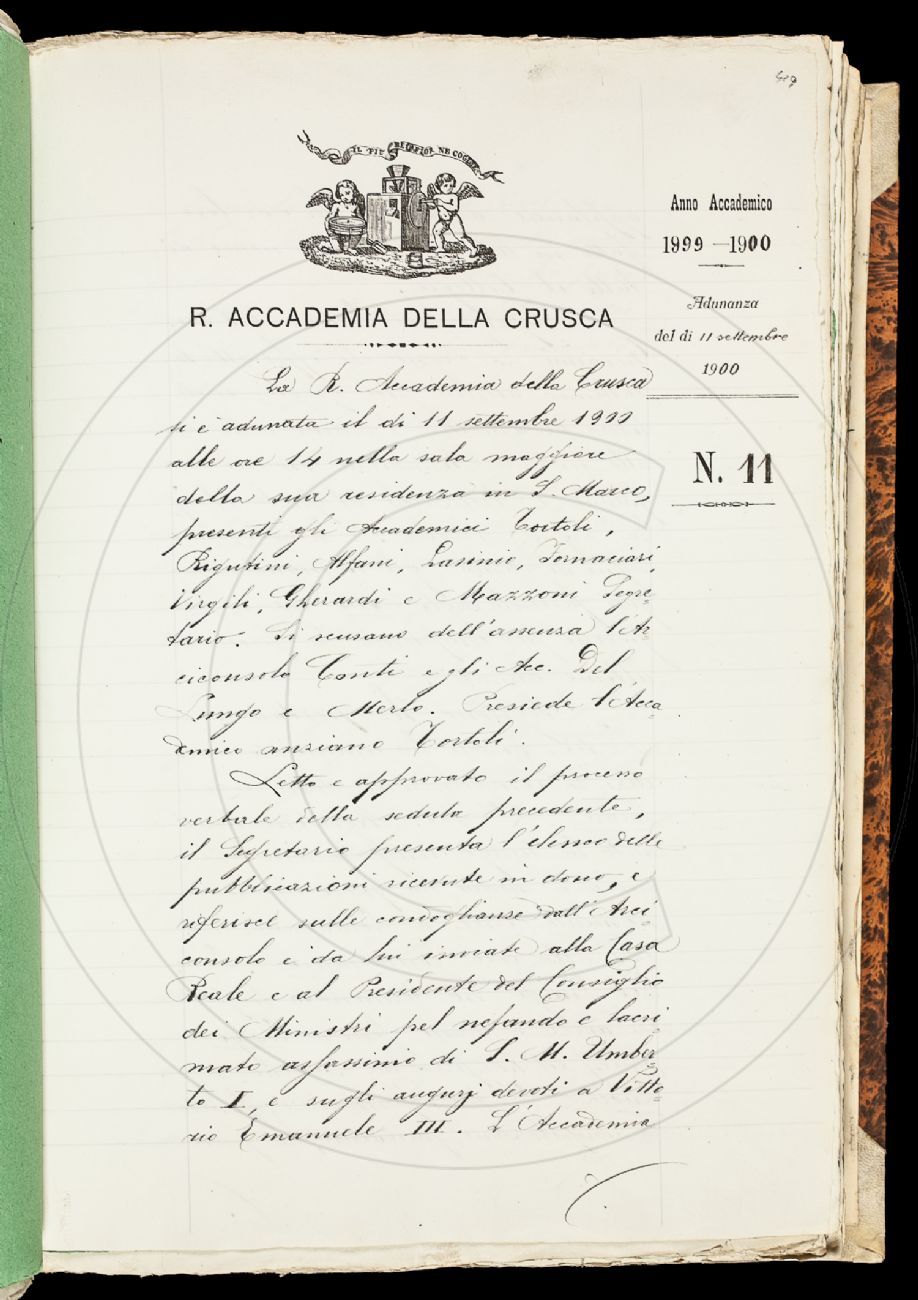 419
IL PIÙ BEL FIOR NE COGLIE
Anno Accademico
1999 – 1900
Adunanza
del dì 11 settembre
1900
N. 11
R. ACCADEMIA DELLA CRUSCA
La R. Accademia della Crusca
si è adunata il dì 11 settembre 1900
alle ore 14 nella sala maggiore
della sua residenza in S. Marco,
presenti gli Accademici Tortoli,
Rigutini, Alfani, Lasinio, Fornaciari,
Virgili, Gherardi e Mazzoni Segre-
tario. Si scusano dell'assenza l'Ar-
ciconsolo Conti e gli Acc. Del
Lungo e Merlo. Presiede l'Acca-
demico anziano Tortoli.
Letto e approvato il processo
verbale della seduta precedente,
il Segretario presenta l'elenco delle
pubblicazioni ricevute in dono, e
riferisce sulle condoglianze dall'Arci-
consolo e da lui inviate alla Casa
Reale e al Presidente del Consiglio
dei Ministri pel nefando e lacri-
mato assassinio di S. M. Umber-
to I, e sugli augurj devoti a Vitto-
rio Emanuele III. L'Accademia